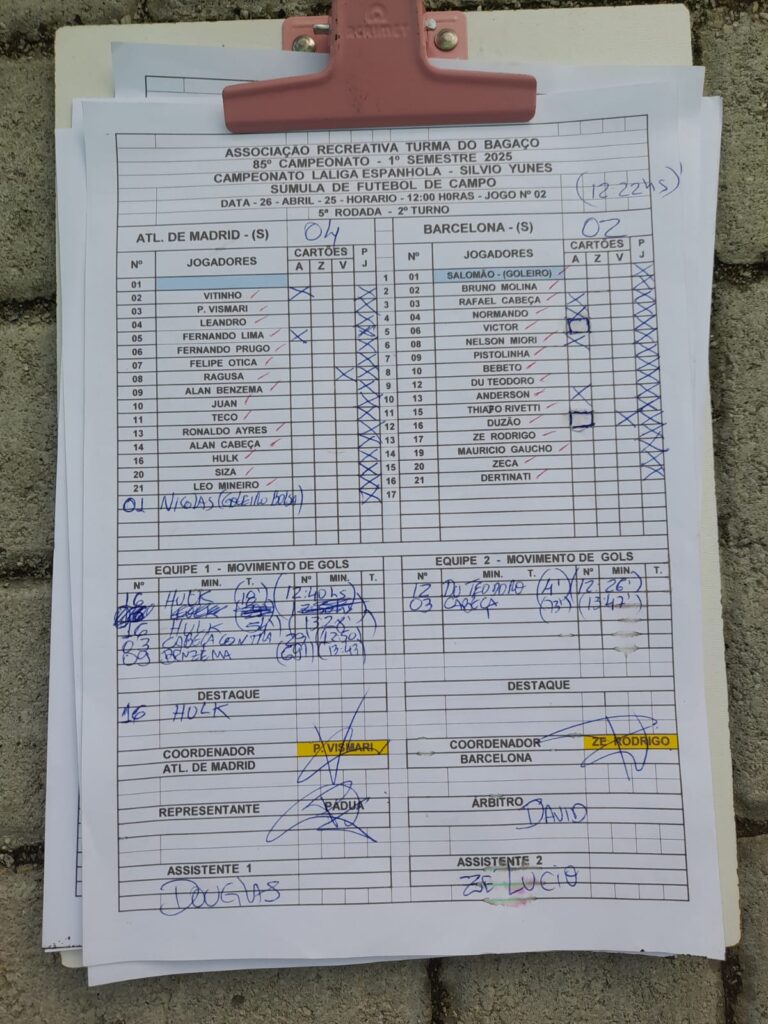 ACRIMET
ASSOCIAÇÃO RECREATIVA TURMA DO BAGAÇO
85º CAMPEONATO - 1º SEMESTRE 2025
CAMPEONATO LALIGA ESPANHOLA - SILVIO YUNES
SÚMULA DE FUTEBOL DE CAMPO (12:22hs)
DATA - 26 - ABRIL - 25 - HORARIO - 12:00 HORAS - JOGO Nº 02
5ª RODADA - 2º TURNO
ATL. DE MADRID - (S) 04
Nº JOGADORES CARTÕES P
A Z V J
01
02 VITINHO
03 P. VISMARI
04 LEANDRO
05 FERNANDO LIMA
06 FERNANDO PRUGO
07 FELIPE OTICA
08 RAGUSA
09 ALAN BENZEMA
10 JUAN
11 TECO
13 RONALDO AYRES
14 ALAN CABEÇA
16 HULK
20 SIZA
21 LEO MINEIRO
01 NICOLAS (GOLEIRO BOLSA)
1
2
3
4
5
6
7
8
9
10
11
12
13
14
15
16
17
BARCELONA - (S) 02
Nº JOGADORES CARTÕES P
A Z V J
01 SALOMÃO - (GOLEIRO)
02 BRUNO MOLINA
03 RAFAEL CABEÇA
04 NORMANDO
06 VICTOR
08 NELSON MIORI
09 PISTOLINHA
10 BEBETO
12 DU TEODORO
13 ANDERSON
15 THIAGO RIVETTI
16 DUZÃO
17 ZE RODRIGO
19 MAURICIO GAUCHO
20 ZECA
21 DERTINATI
EQUIPE 1 - MOVIMENTO DE GOLS
Nº MIN. T. Nº MIN. T.
16 HULK (18') (12:40hs)
16 HULK
03 CABEÇA CONTRA (12:50)
09 BENZEMA (69') (13:43)
EQUIPE 2 - MOVIMENTO DE GOLS
Nº MIN. T. Nº MIN. T.
12 DU TEODORO (4') (12:26')
03 CABEÇA (73') (13:47')
DESTAQUE
16 HULK
DESTAQUE
COORDENADOR P. VISMARI
ATL. DE MADRID
COORDENADOR ZE RODRIGO
BARCELONA
REPRESENTANTE PADUA
ÁRBITRO
DAVID
ASSISTENTE 1
DOUGLAS
ASSISTENTE 2
ZE LUCIO